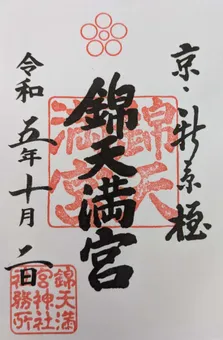 京・新京極
錦天満宮
錦天
満宮
令和五年十月二日
錦天満
宮神社
務所